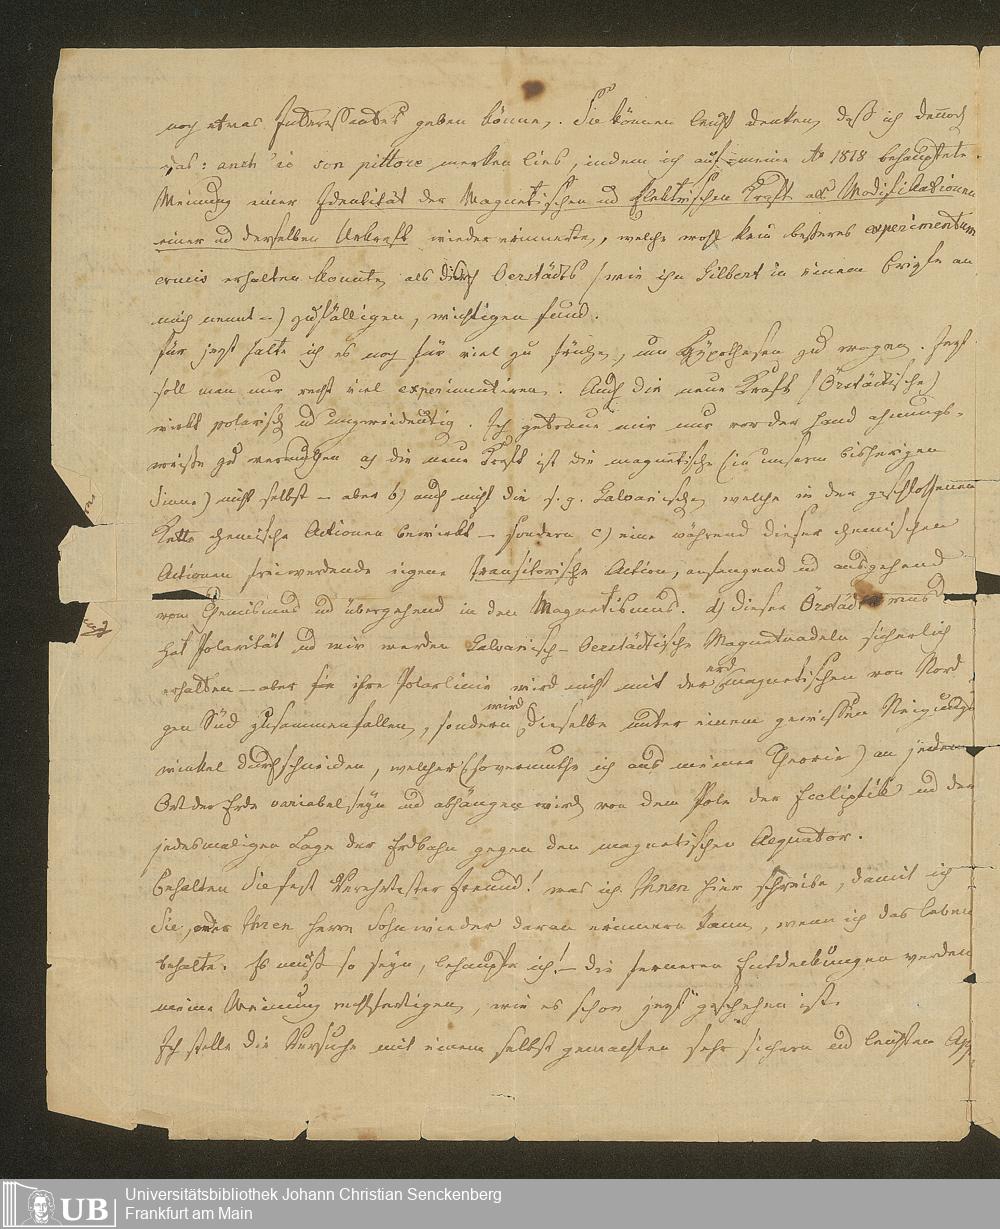 noch etwas Interessantes geben könne. Sie können leicht denken, daß ich dennoch
das: anch'io son pittore merken lies, indem ich auf meine Ao 1818 behauptete
Meinung einer Identität der Magnetischen und Elektrischen Kraft als Modifikationen
einer und derselben Urkraft wieder erinnerte, welche wohl kein besseres experimentum
crucis erhalten konnte, als durch Oerstädts (wie ihn Gilbert in einem Briefe an
mich nennt –) zufälligen, wichtigen Fund.
Für jezt halte ich es noch für viel zu frühe, um Hypothesen zu wagen. Jezt
soll man nur recht viel experimentiren. Auch die neue Kraft (Örstädtische)
wirkt polarisch und unzweideutig. Ich getraue mir nur vor der Hand ahnungs-
weise zu vermuthen a) die neue Kraft ist die magnetische (in unserm bisherigen
Sinne) nicht selbst – aber b) auch nicht die s. g. Galvanische, welche in der geschlossenen
Kette chemische Actionen bewirkt – sondern c) eine während dieser chemischen
Actionen freiwerdende eigene transitorische Action, anfangend und ausgehend
vom Chemismus und übergehend in den Magnetismus. d) dieser Örstädtismus
hat Polarität und wir werden Galvanisch-Oerstädtische Magnetnadeln sicherlich
erhalten – aber ihre Polarlinie wird nicht mit der erdmagnetischen von Nord
gen Süd zusammenfallen, sondern wird dieselbe unter einem gewissen Neigungs
winkel durchschneiden, welcher (so vermuthe ich aus meiner Theorie) an jedem
Ort der Erde variabel seyn und abhängen wird von dem Pole der Ecliptik und der
jedesmaligen Lage der Erdbahn gegen den magnetischen Aequator.
Behalten Sie fest Verehrtester Freund! was ich Ihnen hier schreibe, damit ich
Sie, oder Ihren Herrn Sohn wieder daran erinnern kann, wenn ich das Leben
behalte. Es muß so seyn, behaupte ich! – die ferneren Entdeckungen werden
meine Meinung rechtfertigen, wie es schon jezt geschehen ist.
Ich stelle die Versuche mit einem selbst gemachten sehr sichern und leichten App
Universitätsbibliothek Johann Christian Senckenberg
Frankfurt am Main
UB